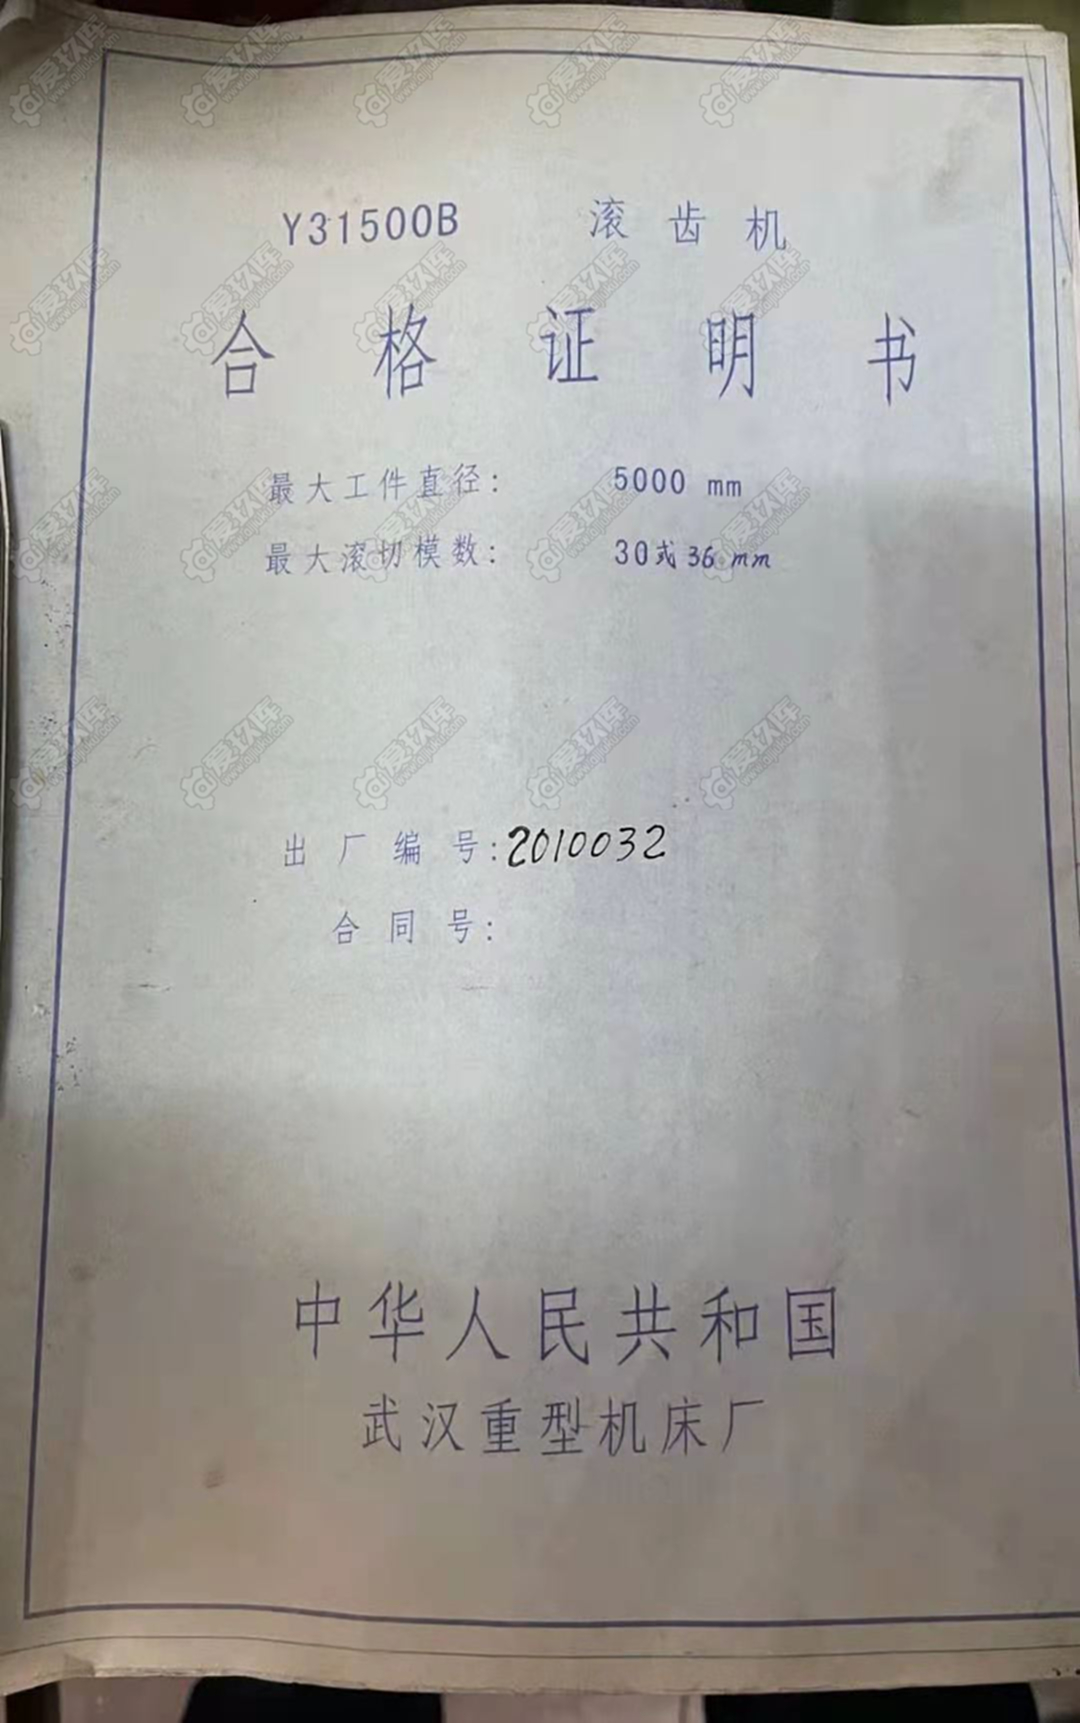 Y31500B 滚齿机
合格证明书
最大工件直径: 5000 mm
最大滚切模数: 30或36 mm
出厂编号:2010032
合同号:
中华人民共和国
武汉重型机床厂